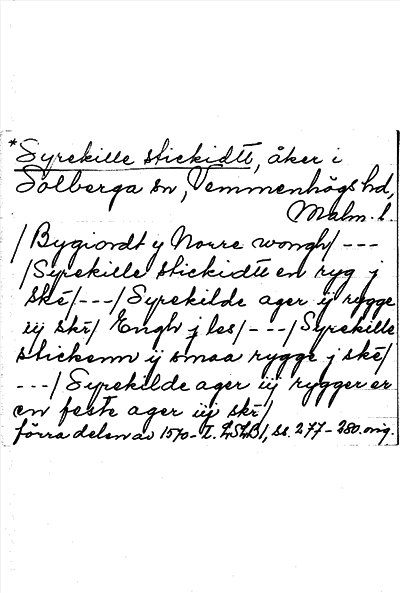 *Syrekille stickidtt, åker i
Solberga sn, Vemmenhögs hd,
Malm. l.
/Bygiordt y Norre wongh/ ---
/Syrekille stickidtt en ryg j
ské/---/Syrekilde ager ij rygge
iij skr/ Engh j les/---/Syrekille
stickenn ij smaa rygge j ské/
---/Syrekilde ager iij rygger er
en feste ager iij skr/
förra delen av 1570-t. LSLB1, ss. 277-280. orig.